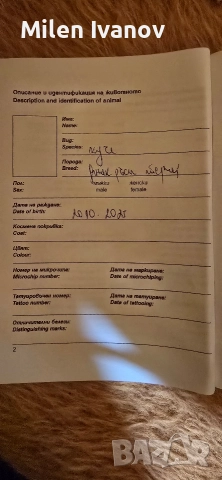 Milen Ivanov
Описание и идентификация на животното
Description and identification of animal
Име:
Name:
Вид:
Species:
куче
Порода:
Breed:
Пол:
мъжки женски
Sex:
male female
Дата на раждане:
Date of birth:
20.10.2025
Космена покривка:
Coat:
Цвят:
Colour:
Номер на микрочипа: Дата на маркиране:
Microchip number: Date of microchiping:
Татуировъчен номер: Дата на татуиране:
Tattoo number: Date of tattooing:
Отличителни белези:
Distinguishing marks:
2
BAZAR